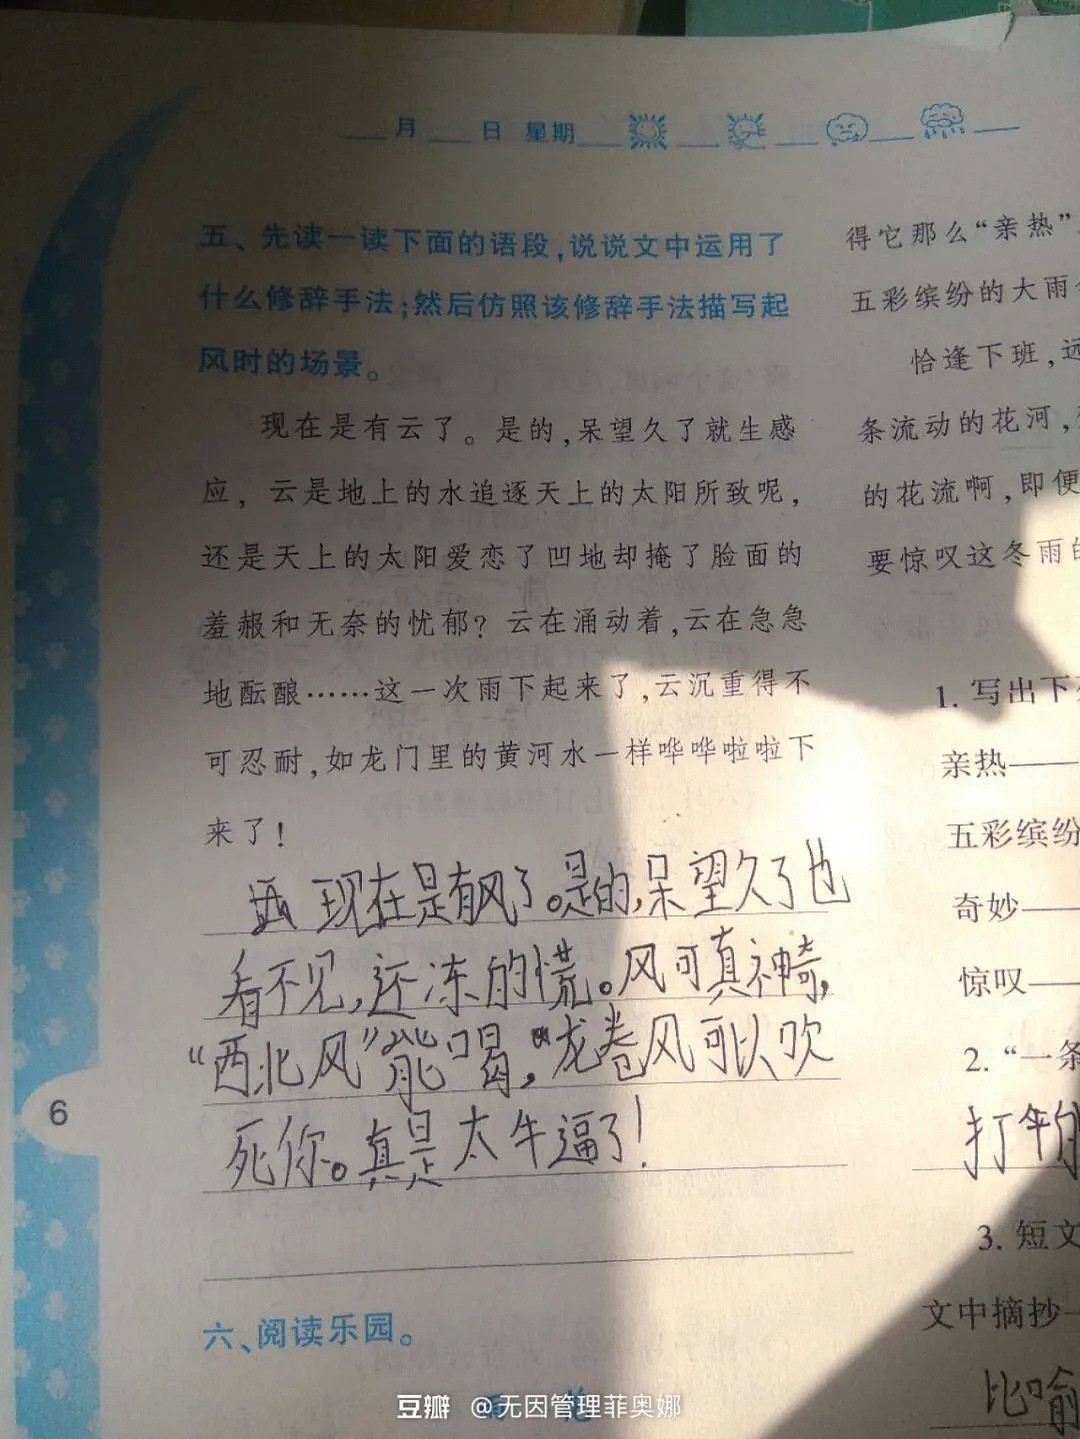 月 日 星期
五、先读一读下面的语段,说说文中运用了
什么修辞手法;然后仿照该修辞手法描写起
风时的场景。
现在是有云了。是的,呆望久了就生感
应,云是地上的水追逐天上的太阳所致呢,
还是天上的太阳爱恋了凹地却掩了脸面的
羞赧和无奈的忧郁?云在涌动着,云在急急
地酝酿……这一次雨下起来了,云沉重得不
可忍耐,如龙门里的黄河水一样哗哗啦啦下
来了!
现在是有风了。是的,呆望久了也
看不见,还冻的慌。风可真神奇,
“西北风”能喝,龙卷风可以吹
死你。真是太牛逼了!
6
六、阅读乐园。
得它那么“亲热”
五彩缤纷的大雨
恰逢下班,远
条流动的花河,
的花流啊,即便
要惊叹这冬雨的
1. 写出下
亲热——
五彩缤纷
奇妙——
惊叹——
2. “一条
打伞的
3. 短文
文中摘抄
比喻
豆瓣 @无因管理菲奥娜